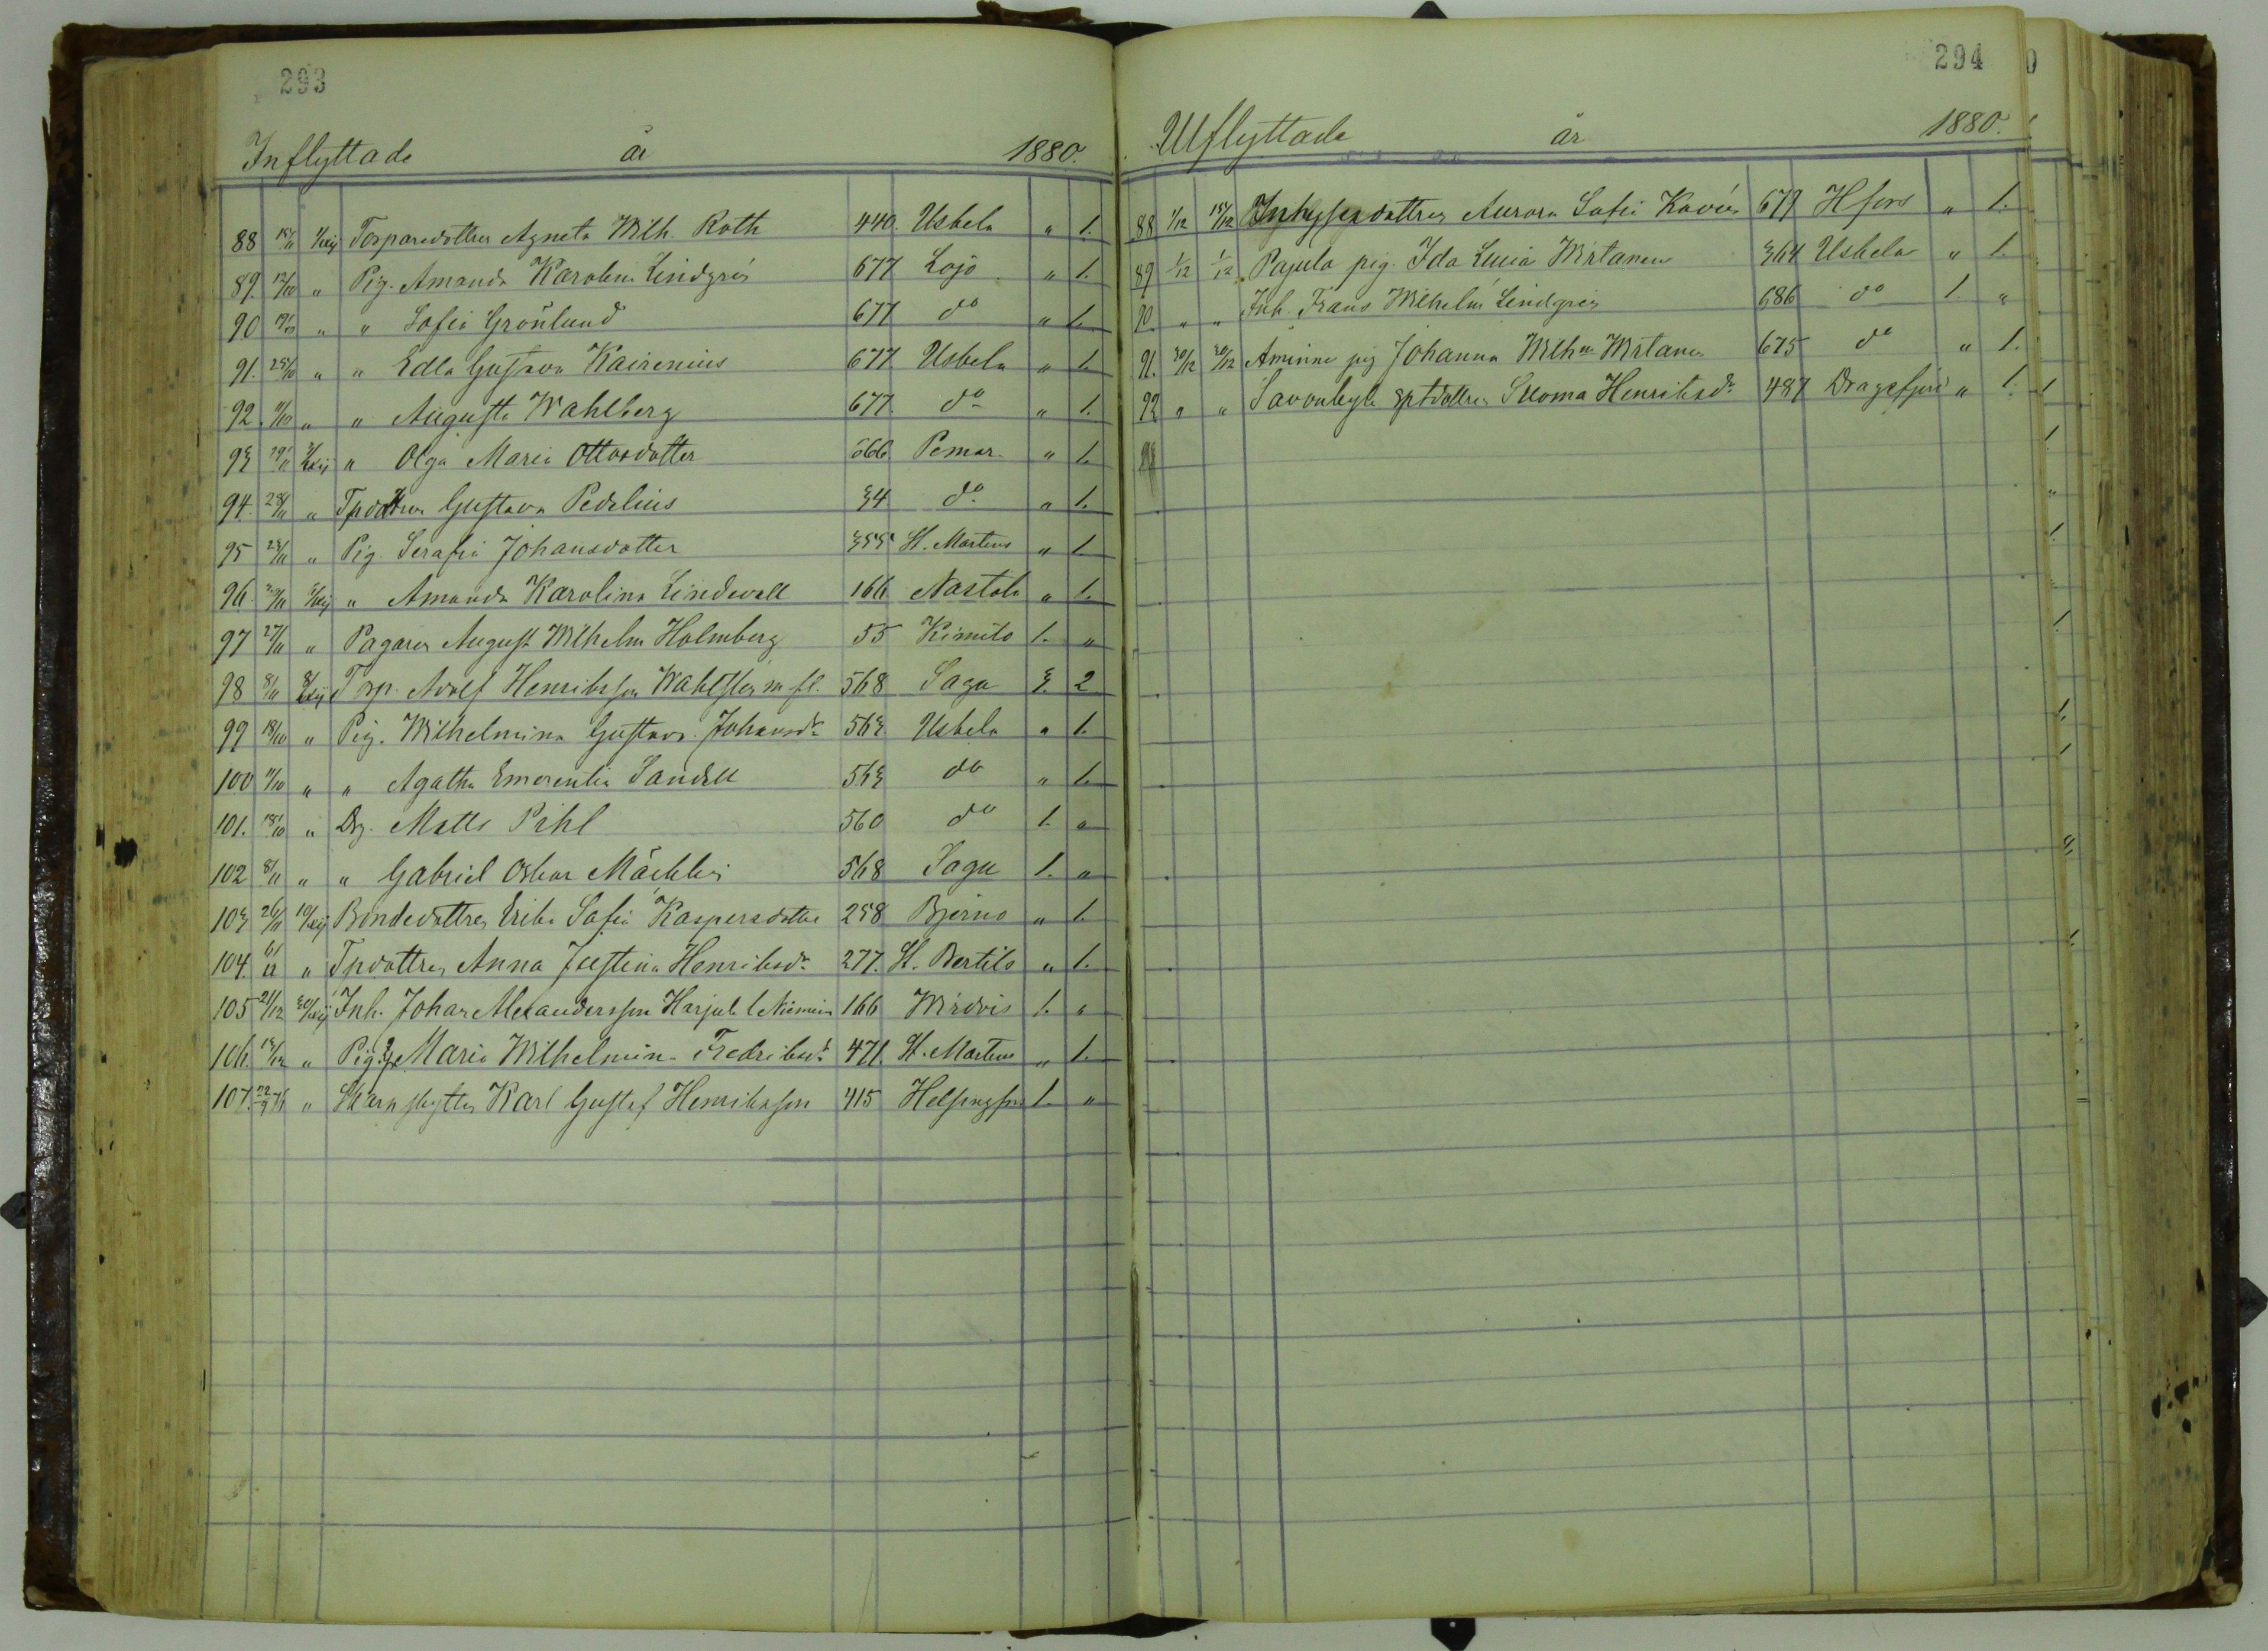 293
Inflyttade år 1880.
88 15/11 1/xij Torparedottren Agneta Wilh. Roth 440. Uskela " 1.
89. 12/10 " Pig. Amanda Karolina Lindgrén 677 Lojo " 1.
90 19/10 " " Sofia Grönlund 677 do " 1.
91. 25/10 " " Edla Gustava Kairenius 677 Uskela " 1.
92. 11/10 " " Augusta Wahlberg 677. do " 1.
93 29/11 2/xij " Olga Maria Ottosdotter 666 Pemar. " 1.
94. 28/11 " Tpdottren Gustava Pedelius 34 do " 1.
95 25/11 " Pig. Serafia Johansdotter 355 St. Martens " 1.
96. 30/11 3/xij " Amanda Karolina Lindevall 166 Nastola " 1.
97 27/11 " Pagaren August Wilhelm Holmberg 55 Kimito 1. "
98 8/11 8/xij Torp. Adolf Henriksson Wahlsten m fl. 568 Sagu 3. 2
99 18/10 " Pig. Wilhelmina Gustava Johansdr 563. Uskela " 1.
100 11/10 " " Agatha Emerentia Sandell 563 do " 1.
101. 18/10 " Drg. Matts Pihl 560 do 1. "
102 8/11 " " Gabriel Oskar 568 Sagu 1. "
103 26/11 10/xij Bondedottren Erika Sofia Kaspersdotter 258 Bjerno " 1.
104. 6/12 " Tpdottren Anna Justina Henriksdr 277. St. Bertils " 1.
105 21/12 30/xij Inh. Johan Alexandersson Harjula l. Nieminen 166 Wirdois 1. "
106. 15/12 " Pig. Maria Wilhelmina Fredriksdr 471. St. Martens " 1.
107. 22/9 76 " Skarpskytten Karl Gustaf Henriksson 415 Helsingfors 1. "
294
Utflyttade år 1880.
88 1/12 15/12 Inhysesdottren Aurora Sofia Kovén 679 Hfors " 1.
89 1/12 1/12 Pajula pig. Ida Lucia Wirtanen 364 Uskela " 1.
90 " " Inh. Frans Wilhelm Lindgrén 686 do 1. "
91. 30/12 30/12 Aminne pig Johanna Wilhna Wirtanen 675 do " 1.
92 " " Savonkylä Henriksdr 487 Dragsfjerd " 1.